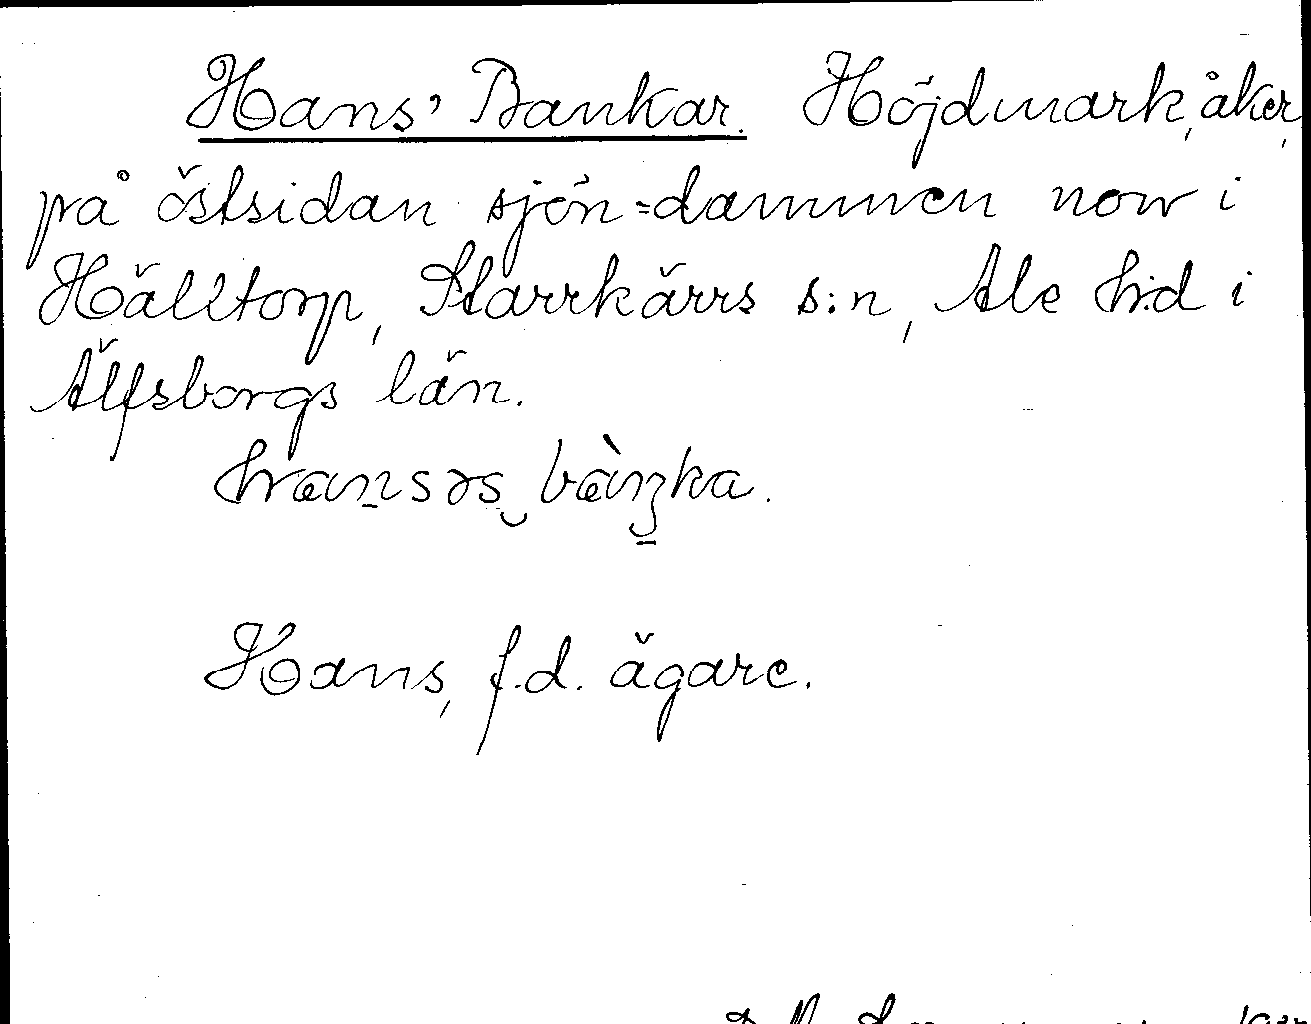 Hans' Bankar. Höjdmark, åker,
på östsidan sjön=dammen norr i
Hälltorp, Starrkärrs s:n, Ale h:d i
Älfsborgs län.
hansəs baŋka.
Hans, f.d. ägare.